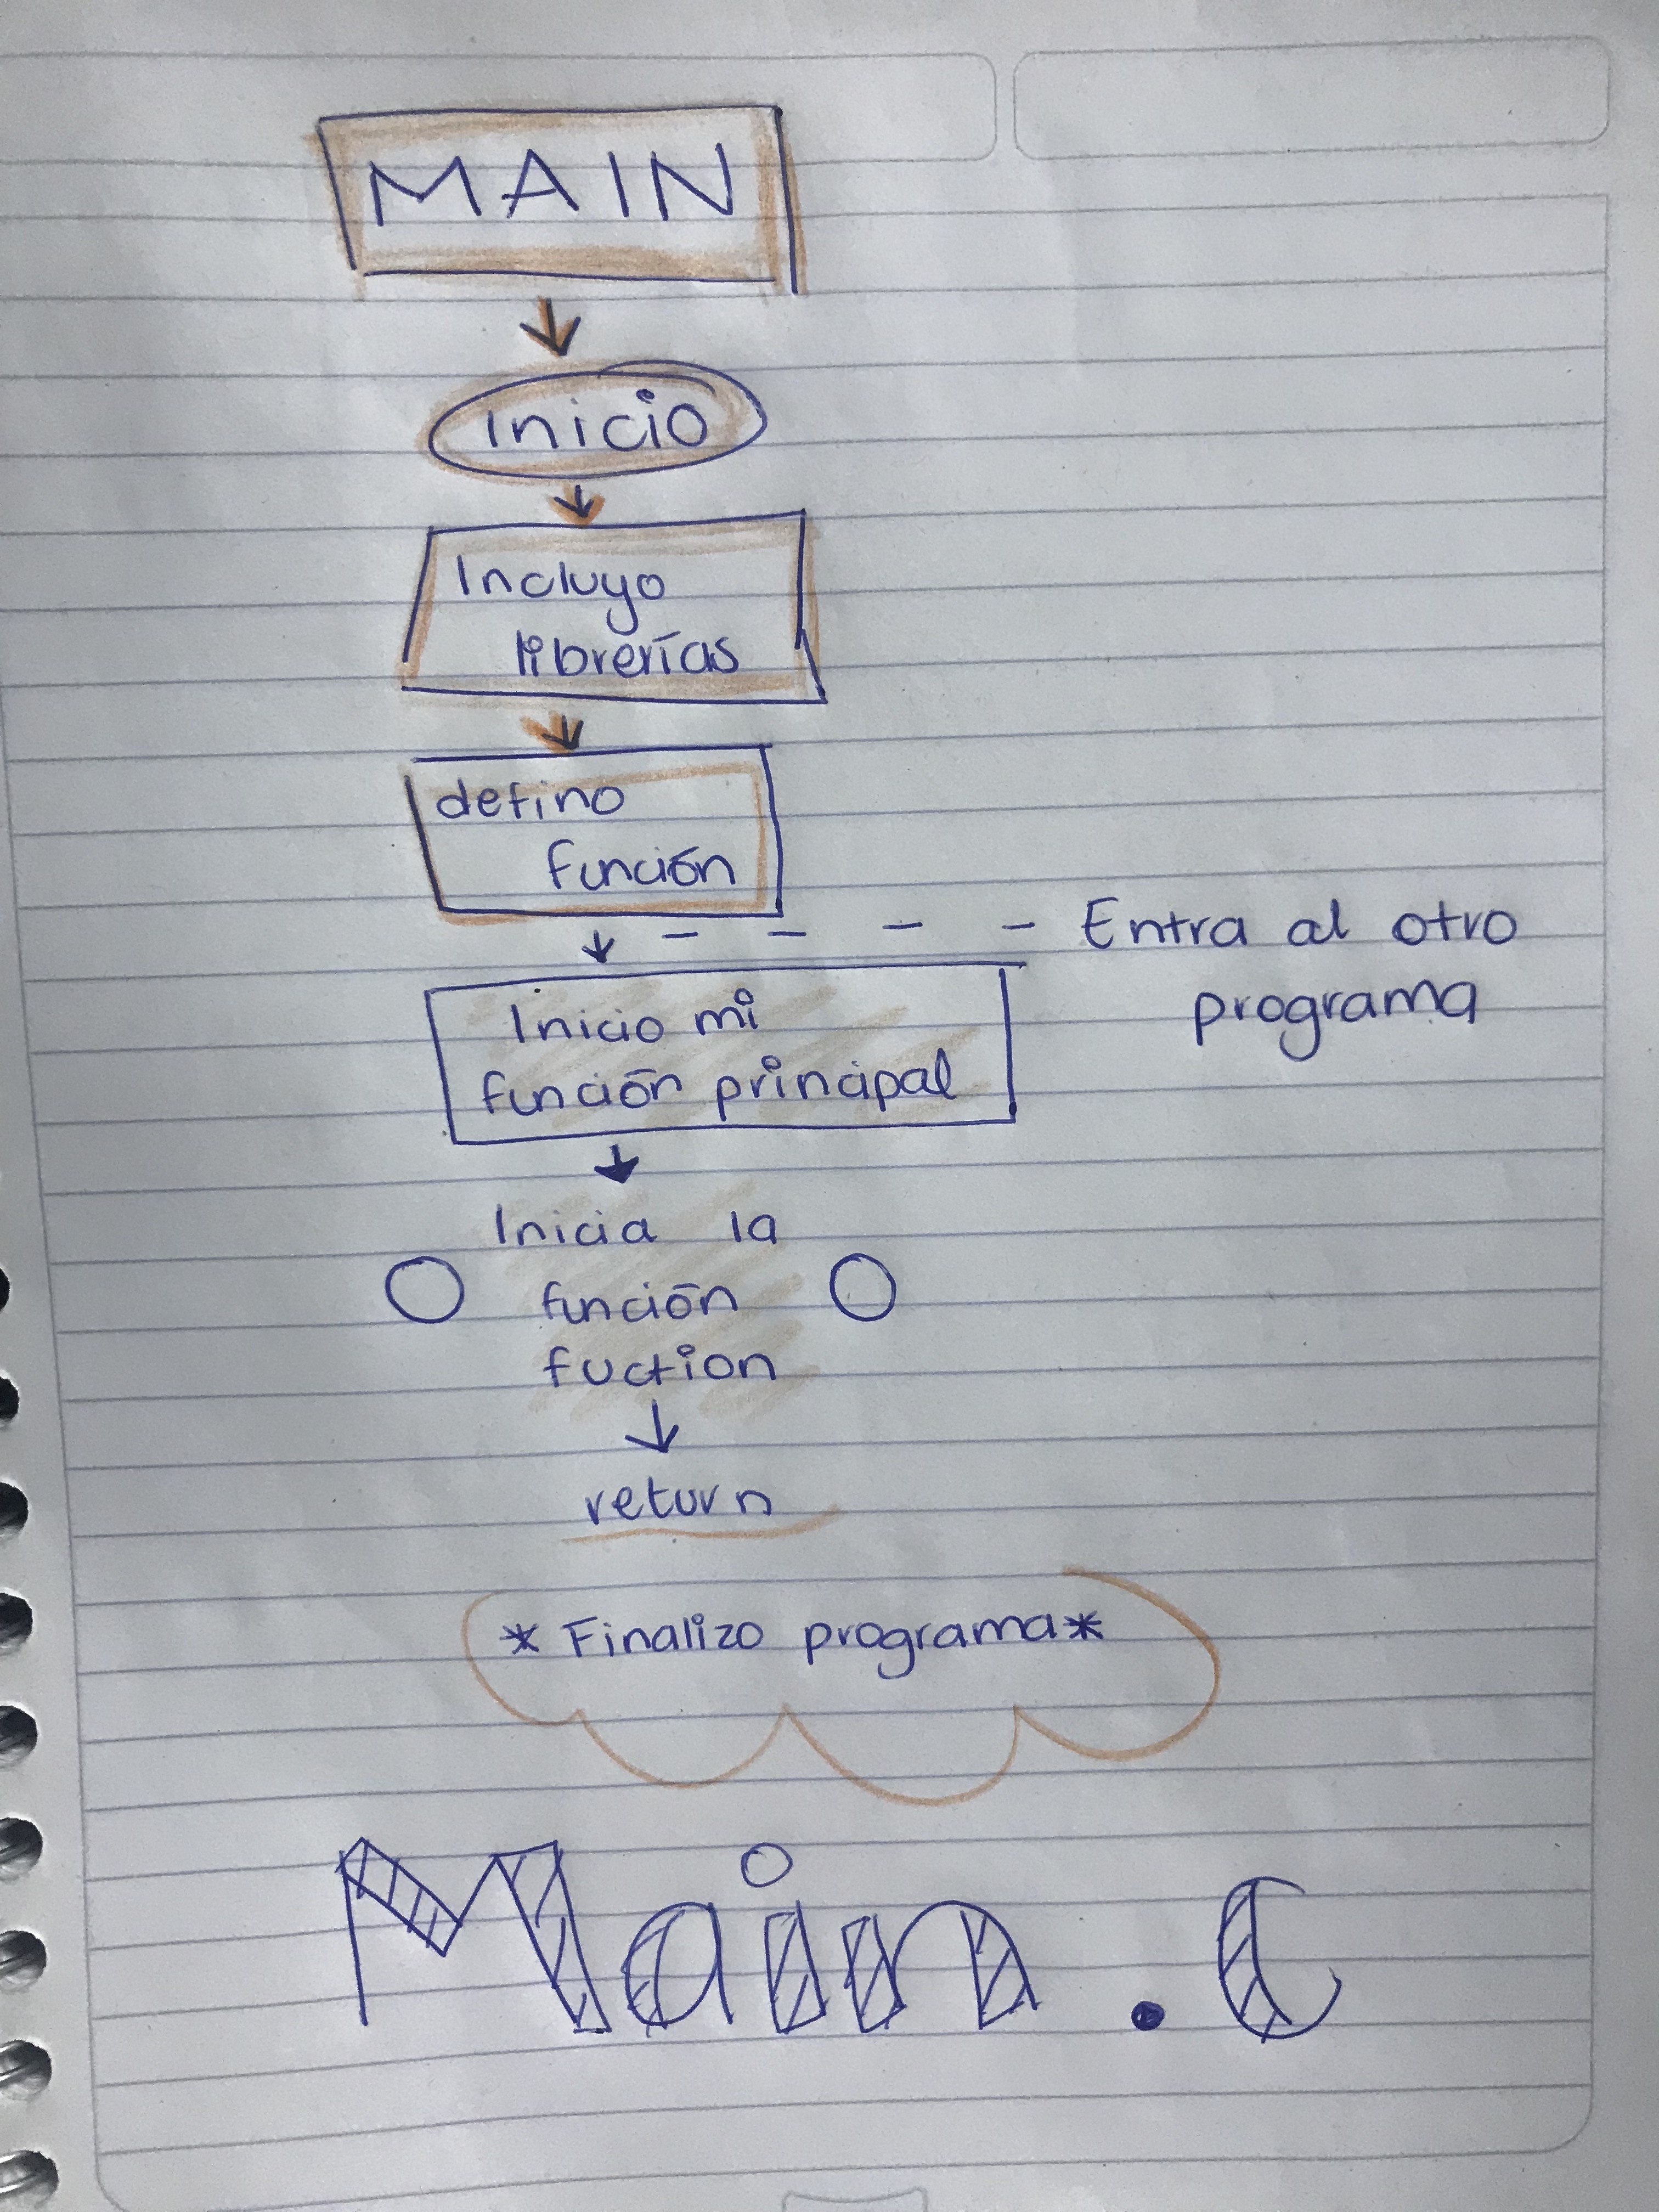 MAIN
Inicio
Incluyo
librerías
defino
función
Entra al otro
programa
Inicio mi
función principal
Inicia la
función
fuction
return
* Finalizo programa *
Main.c